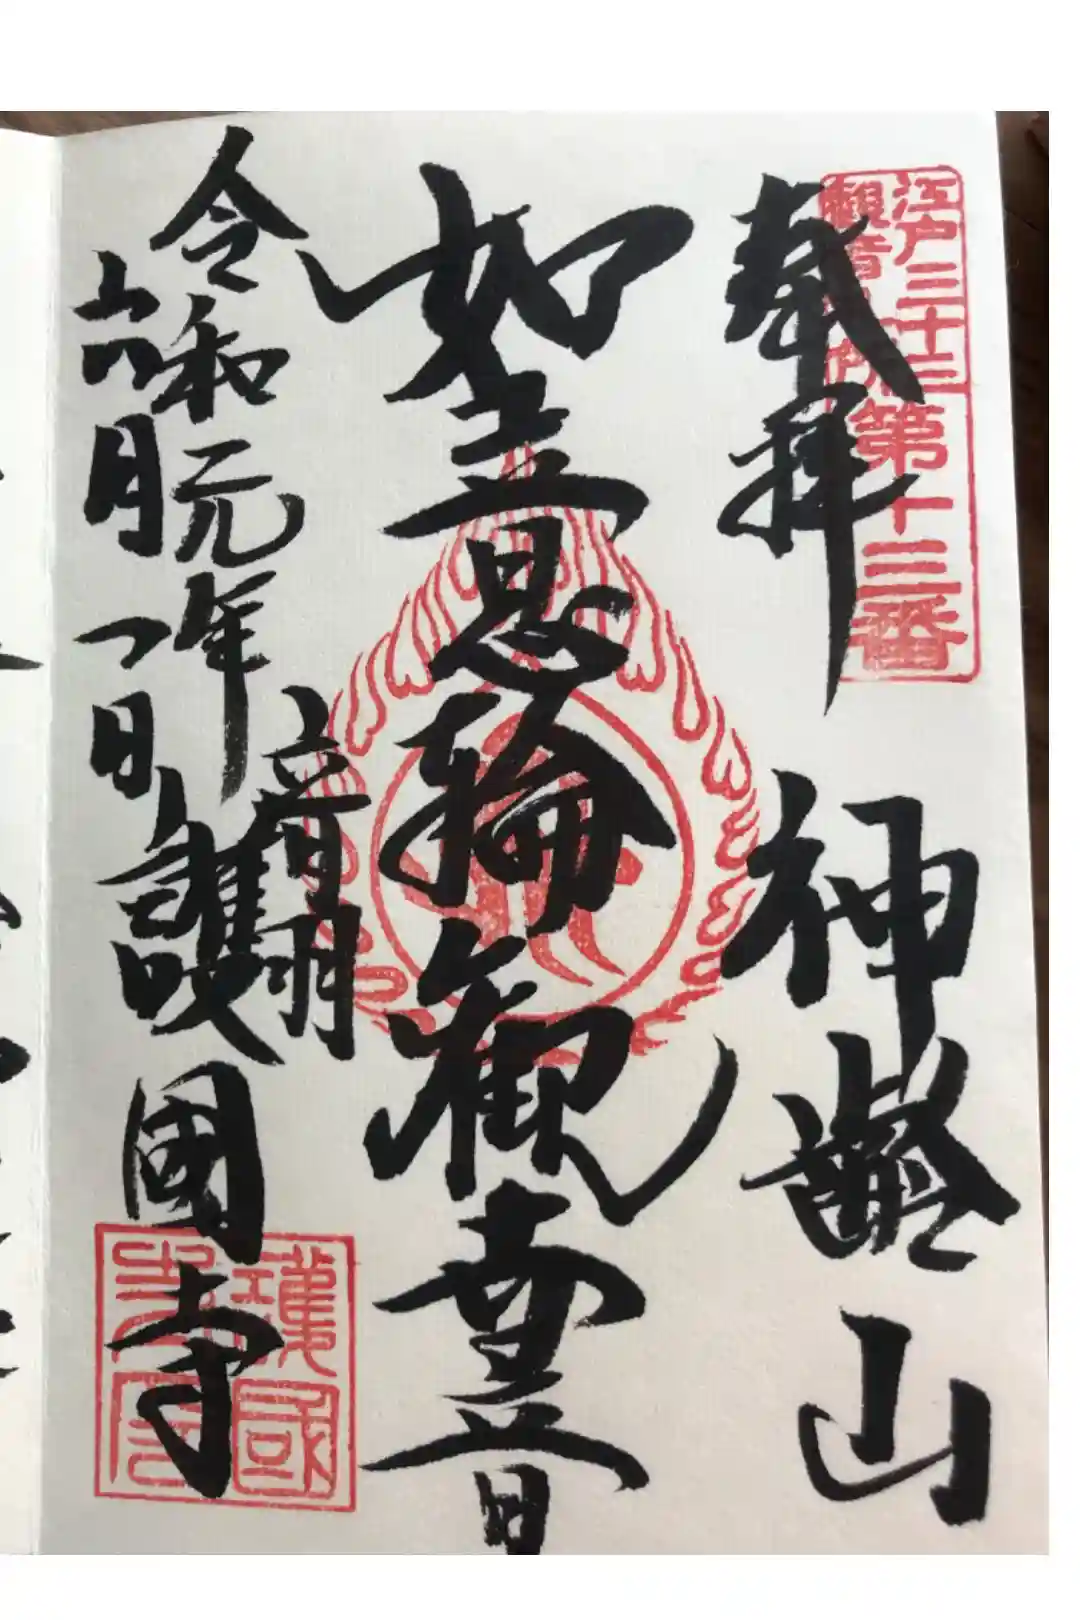 江戸三十三
観音札所第十三番
奉拝
神齢山
如意輪観世音
令和元年
六月一日
音羽
護國寺